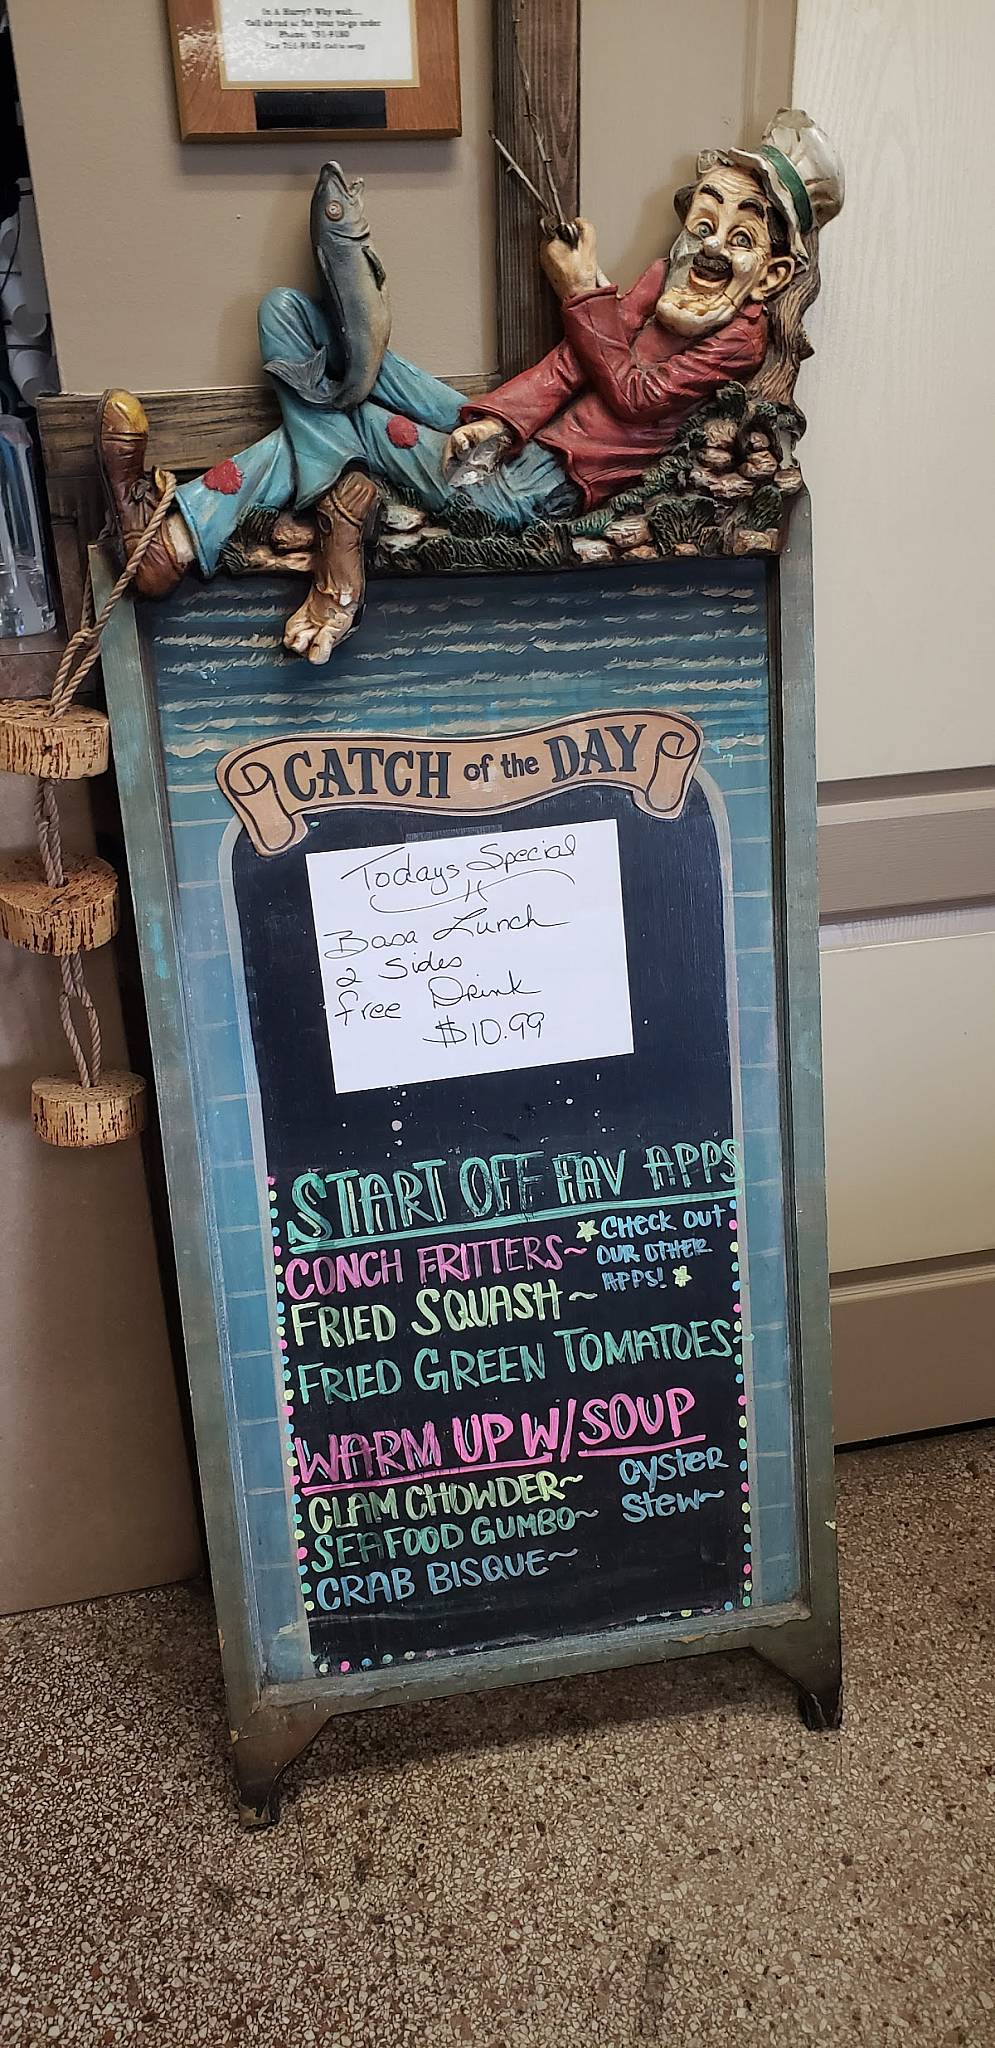 In A Hurry? Why wait....
Call ahead or fax your to-go order
Phone: 751-9180
Fax 751-9182 (Call to verify)
CATCH of the DAY
Todays Special
Basa Lunch
2 Sides
free Drink
$10.99
START OFF FAV APPS
CONCH FRITTERS~
*CHECK OUT
OUR OTHER
APPS! *
FRIED SQUASH~
FRIED GREEN TOMATOES~
WARM UP W/SOUP
CLAM CHOWDER~
SEAFOOD GUMBO~
CRAB BISQUE~
OYSTER
STEW~